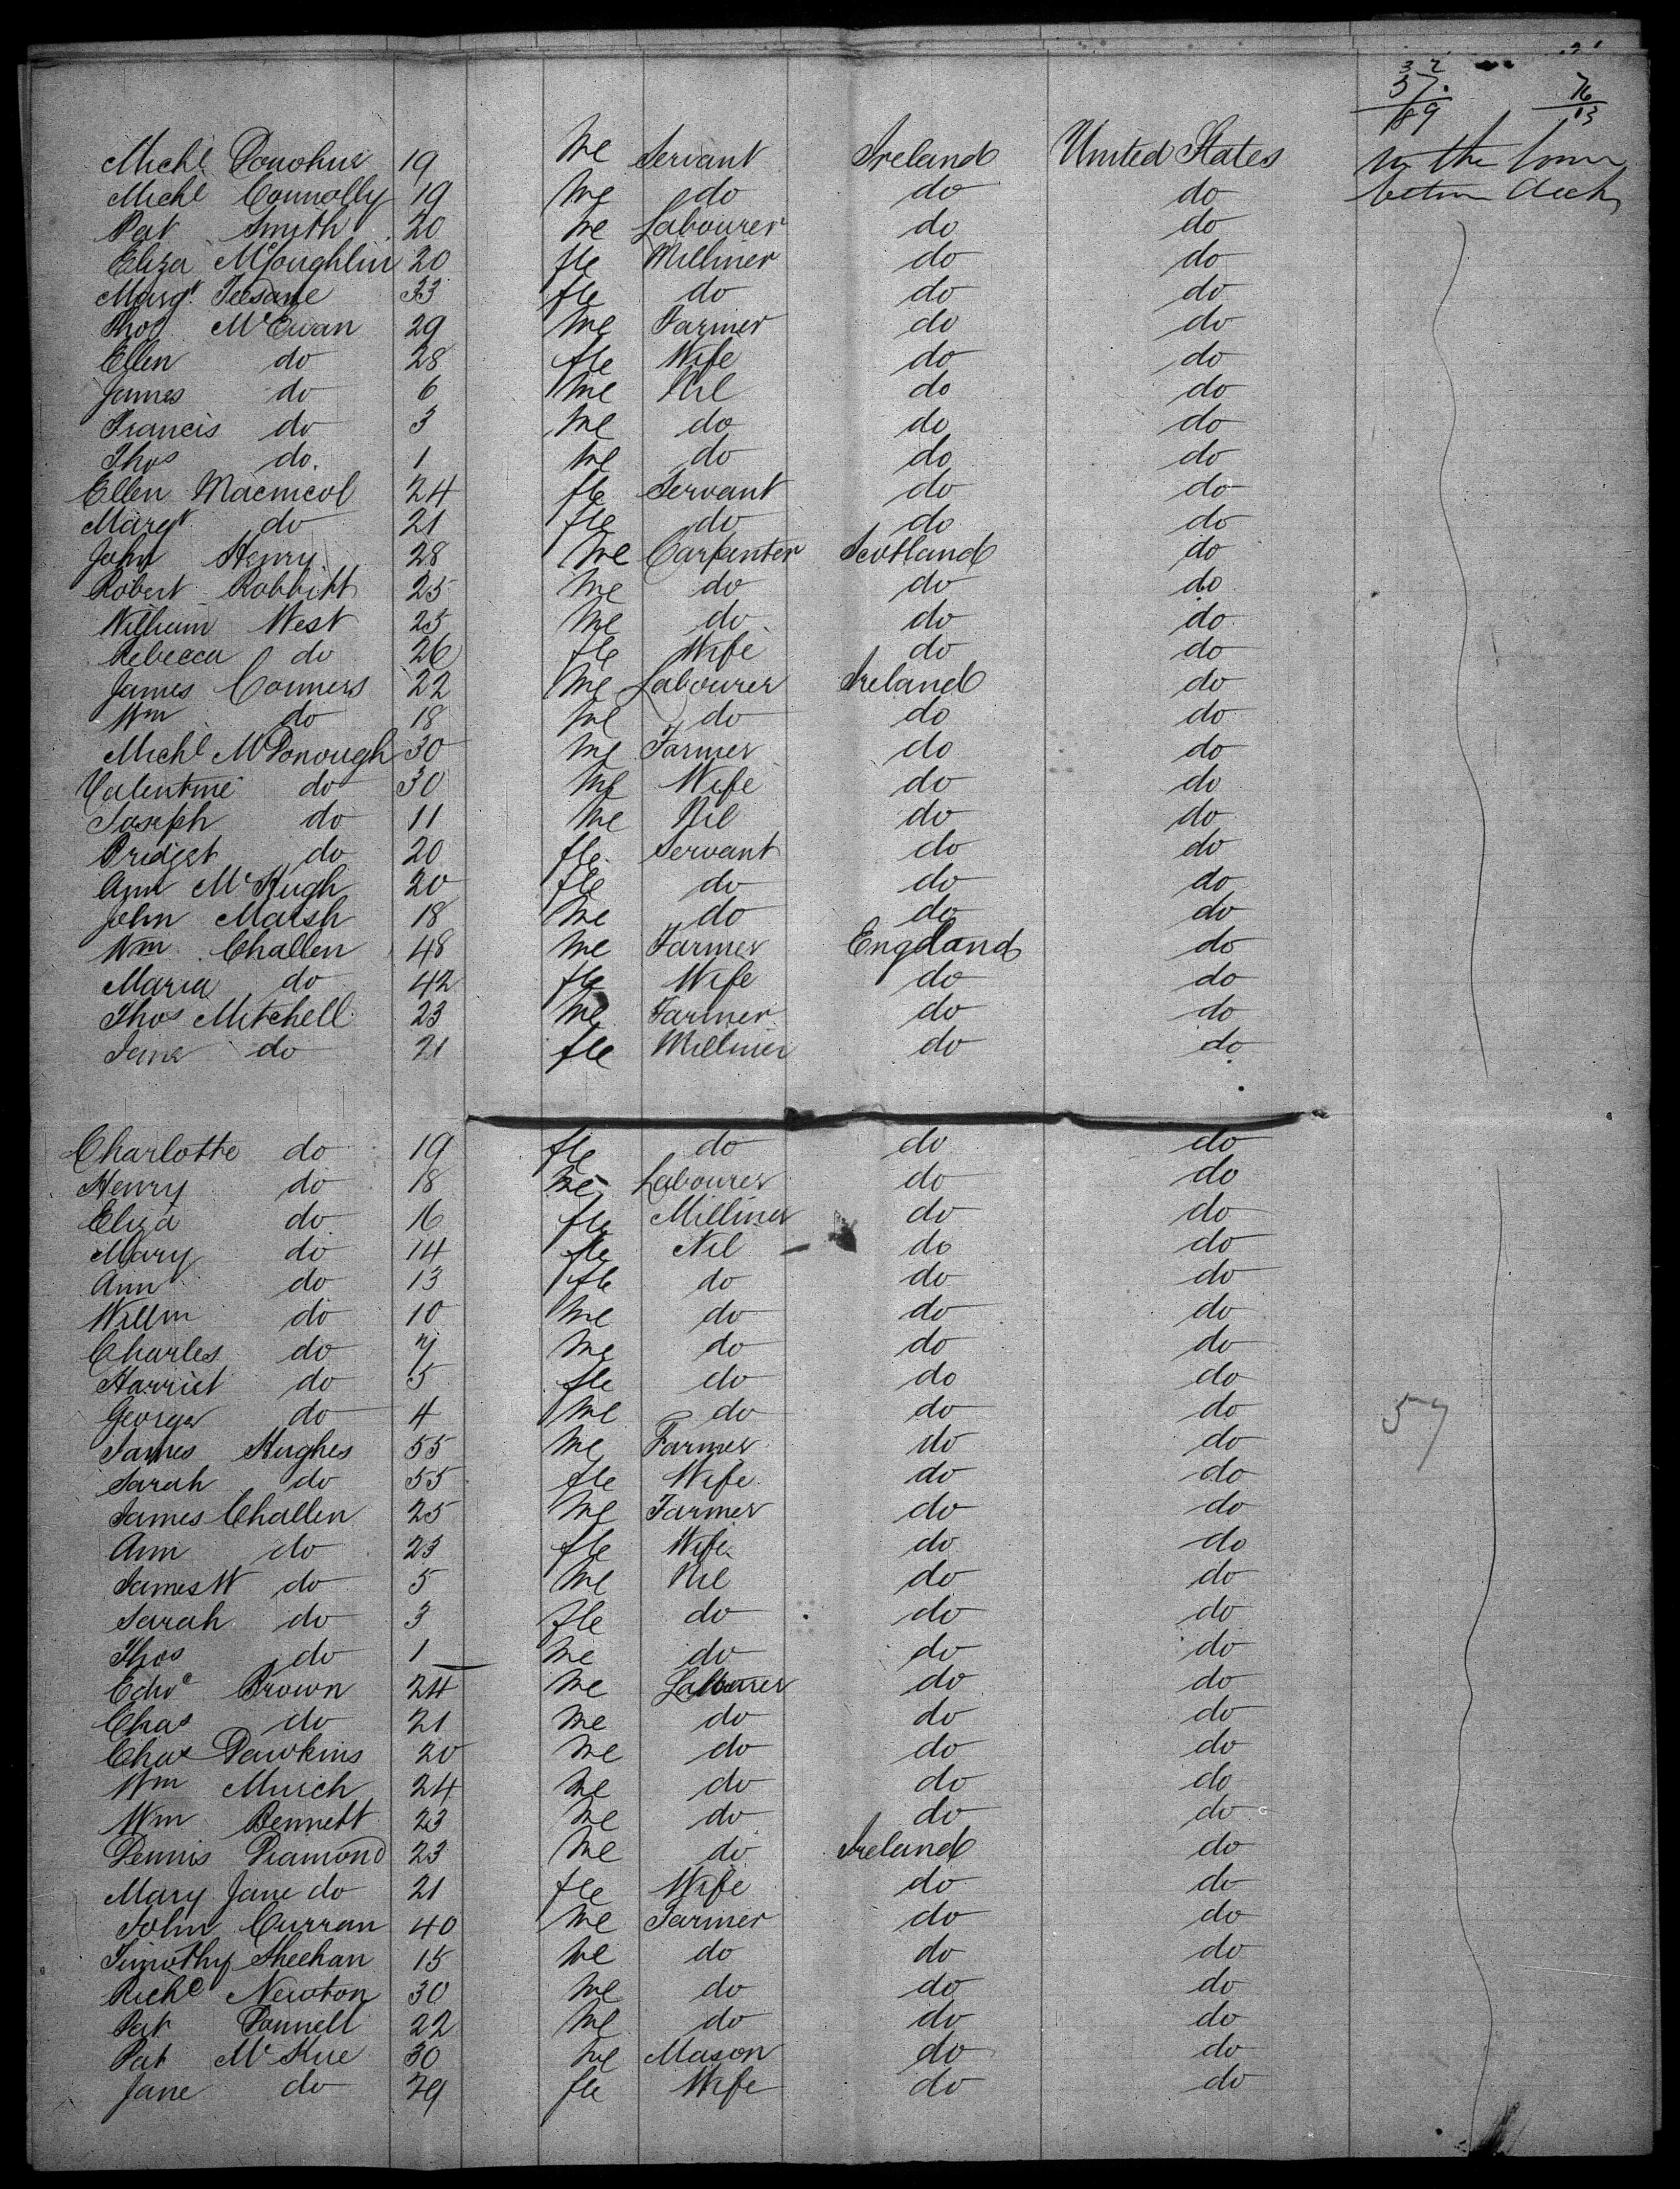 32
57. 76
89 13
Michl Donohue 19 Me Servant Ireland United States In the lower
Michl Connolly 19 Me do do do between decks
Pat Smith 20 Me Labourer do do
Eliza McLoughlin 20 fle Milliner do do
Margt 33 fle do do do
Thos McEwan 29 Me Farmer do do
Ellen do 28 fle Wife do do
James do 6 Me Nil do do
Francis do 3 Me do do do
Thos do. 1 Me do do do
Ellen Macnicol 24 fle Servant do do
Margt do 21 fle do do do
John Henry 28 Me Carpenter Scotland do
Robert Robbitt 25 Me do do do
William West 25 Me do do do
Rebecca do 26 fle Wife do do
James Conners 22 Me Labourer Ireland do
Wm do 18 Me do do do
Michl McDonough 30 Me Farmer do do
Valentine do 30 Me Wife do do
Joseph do 11 Me Nil do do
Bridget do 20 fle Servant do do
Ann McHugh 20 fle do do do
John Marsh 18 Me do do do
Wm Challen 48 Me Farmer England do
Maria do 42 fle Wife do do
Thos Mitchell 23 Me Farmer do do
Jane do 21 fle Milliner do do
Charlotte do 19 fle do do do
Henry do 18 Me Labourer do do
Eliza do 16 fle Milliner do do
Mary do 14 fle Nil do do
Ann do 13 fle do do do
Willm do 10 Me do do do
Charles do 7 Me do do do
Harriet do 5 fle do do do
George do 4 Me do do do 57
James Hughes 55 Me Farmer do do
Sarah do 55 fle Wife do do
James Challen 25 Me Farmer do do
Ann do 23 fle Wife do do
James W do 5 Me Nil do do
Sarah do 3 fle do do do
Thos do 1 Me do do do
Edwd Brown 24 Me Labourer do do
Chas do 21 Me do do do
Chas Dawkins 20 Me do do do
Wm Murch 24 Me do do do
Wm Bennett 23 Me do do do
Dennis Diamond 23 Me do Ireland do
Mary Jane do 21 fle Wife do do
John Curran 40 Me Farmer do do
Timothy Sheehan 15 Me do do do
Richd Newton 30 Me do do do
Pat Donnell 22 Me do do do
Pat McKue 30 Me Mason do do
Jane do 29 fle Wife do do